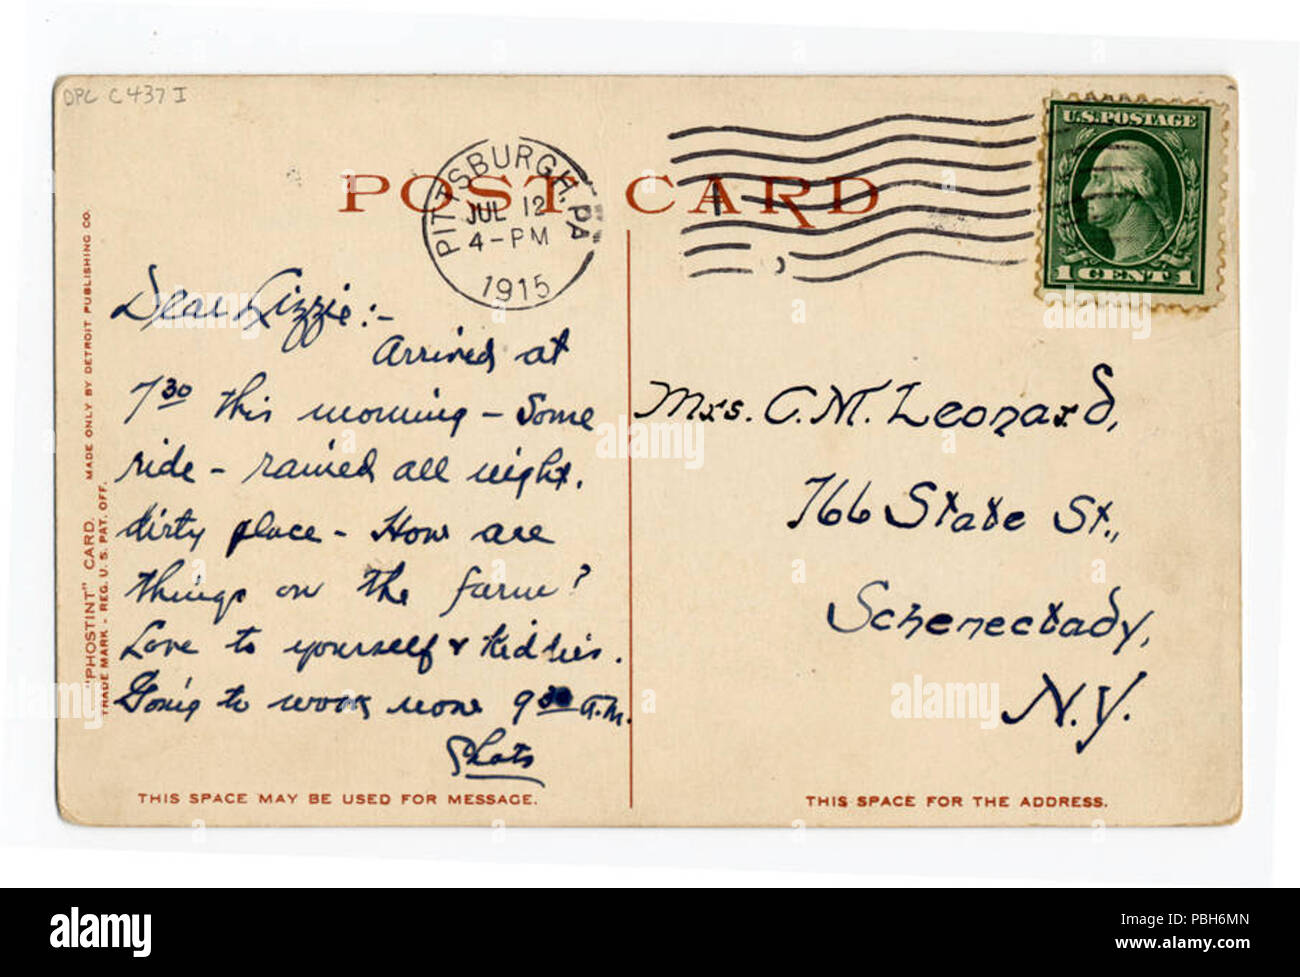 DPC C 437 I
POST CARD
PITTSBURGH, PA
JUL 12
4-PM
1915
U.S. POSTAGE
1 CENT 1
"PHOSTINT" CARD. MADE ONLY BY DETROIT PUBLISHING CO.
TRADE MARK - REG. U. S. PAT. OFF.
Dear Lizzie:-
Arrived at
7 30 this morning - Some
ride - rained all night.
dirty place - How are
things on the farm?
Love to yourself & Kiddies.
Going to work now 9 30 a.m.
THIS SPACE MAY BE USED FOR MESSAGE.
Mrs. C. M. Leonard,
766 State St.,
Schenectady,
N.Y.
THIS SPACE FOR THE ADDRESS.
alamy
Image ID: PBH6MN
www.alamy.com